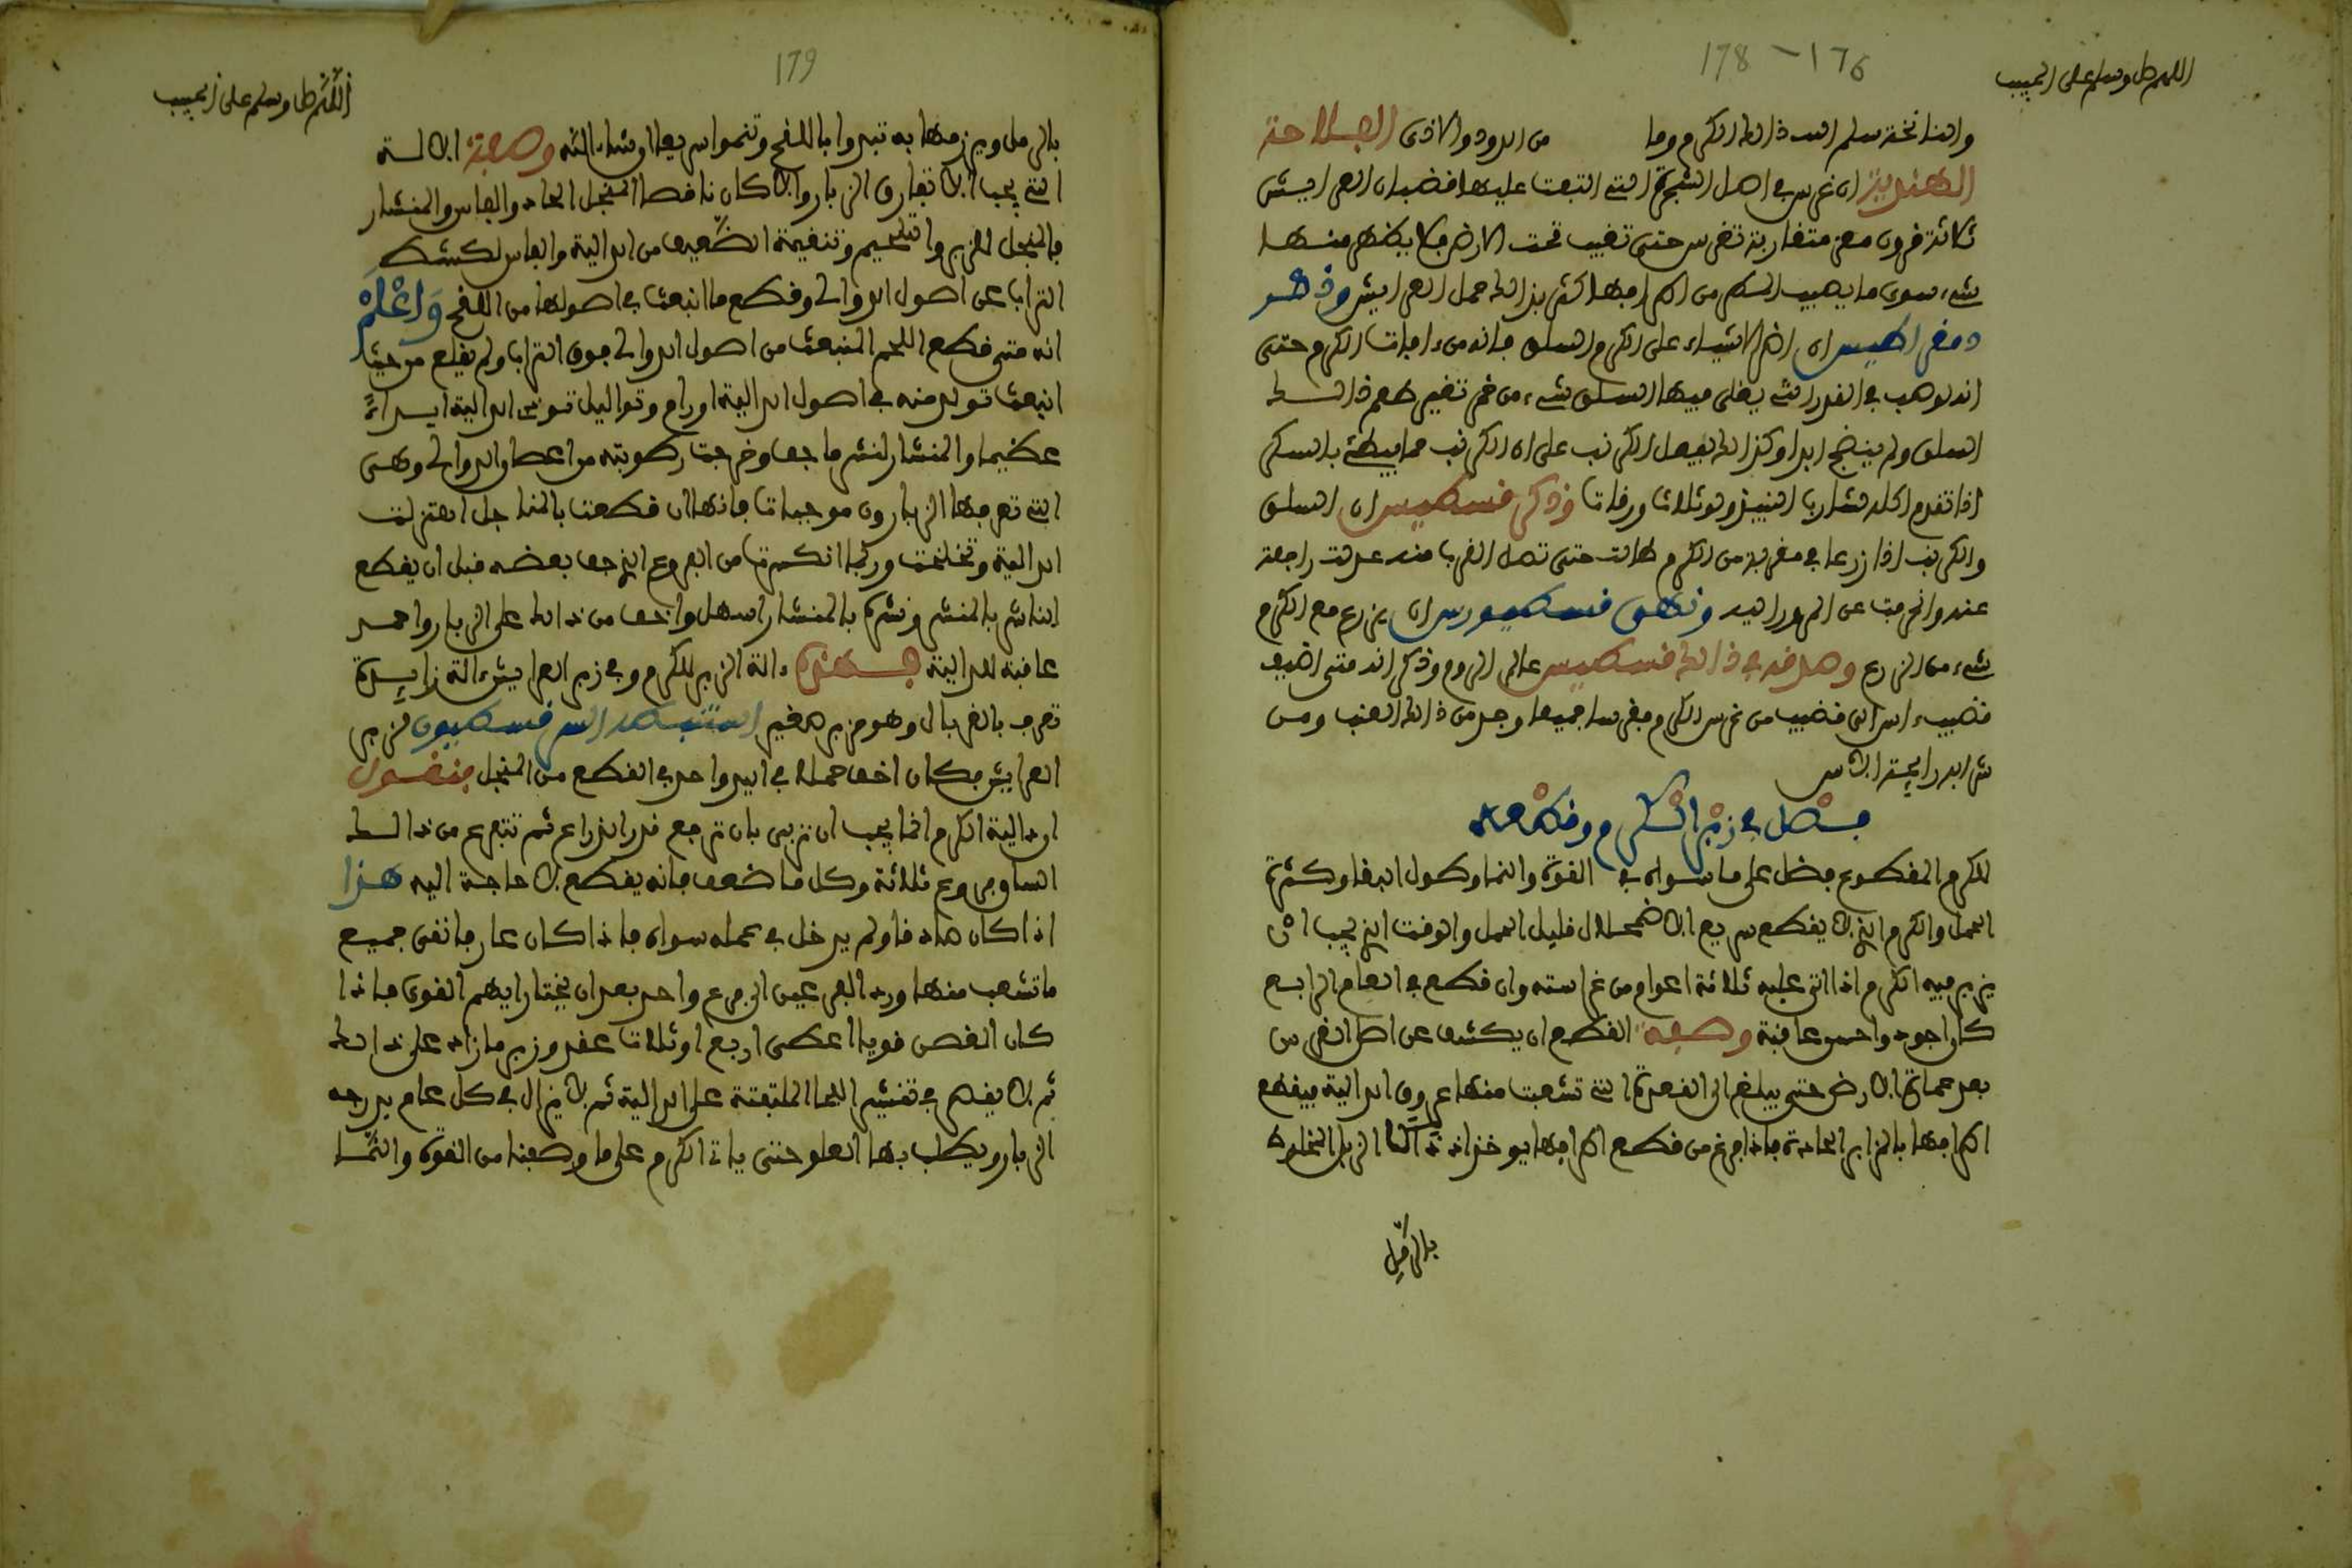 178 - 176
اللهم صل وسلم على الحبيب
والنانخة سلم الله ذلك الكرم وما من الدود والاذى الفلاحة
الهندية ان غرس في اصل الشجرة التي التبعت عليها قضبان العرايش
ثلاثة قرون معز متقاربة تغرس حتى تغيب تحت الارض فلا يظهر منها
شيء سوى ما يصيب السكي من اطرافها كثر بذلك حمل العرايش وذكر
دمقراطيس ان اضر الاشياء على الكرم السلق فانه من افات الكرم حتى
انه لو صب في القدر التي يغلى فيها السلق شيء من خمر تغير طعم ذلك
السلق ولم ينضج ابدا وكذلك يفعل الكرنب على ان الكرنب مما يبطئ بالسكر
اذا تقدم اكله شارب النبيذ ولو ثلاث ورقات وذكر قسطيس ان السلق
والكرنب اذا زرعا في مقربة من الكرم طالت حتى تصل القرب منه عدلت راجعة
عنه وانحرفت عن المرور اليه ونهى قسطيوس ان يزرع مع الكرم
شيء من الزرع وصدقه في ذلك قسطيس عالم الروم وذكر انه متى اضيف
قضيب اس الى قضيب من غرس الكرم وغرسا جميعا وجد من ذلك العنب ومن
شرابه رايحة الاس
فصل في زبر الكرم وقطعه
للكرم المقطوع فضل على ما سواه في القوة والنماء وطول البقاء وكثرة
الحمل والكرم الذي لا يقطع سريع الاضمحلال قليل الحمل والوقت الذي يجب ان
يزبر فيه الكرم اذا اتى عليه ثلاثة اعوام من غراسته وان قطع في العام الرابع
كان اجود واحسن عاقبة وصفة القطع ان يكشف عن اصل الغرس
بعد عمارة الارض حتى يبلغ الى القعدة التي تشعبت منها عروق الدالية فيقطع
اطرافها بالمزابر الحادة فاذا فرغ من قطع اطرافها يوخذ اذ ذاك الزبل المخلوط
بالرمل
179
اللهم صل وسلم على الحبيب
بالرمل ويزمها به تبروا باللقح وتنموا سريعا ان شاء الله وصفة الالة
التي يجب الا تفارق الزبار والا كان ناقصا المنجل الحاد والفاس والمنشار
فالمنجل للزبر والتلحيم وتنقية الضعيف من الدالية والفاس لكشط
التراب عن اصول الدوالي وقطع ما انبعث في اصولها من اللقح وَاعْلَمْ
انه متى قطع اللحم المنبعث من اصول الدوالي فوق التراب ولم يقلع من حيث
انبعث تولد منه في اصول الدالية اورام وثواليل تودي الدالية ايذاءً
عظيما والمنشار لنشر ما جف وخرجت رطوبته من اعطاء الدوالي وهي
التي تعرفها الزبارون موجبات فانها ان قطعت بالمناجل اهتزلت
الدالية وتخلخلت وربما انكسرت من الفروع الذي جف بعضه قبل ان يقطع
الناشر بالمنشر ونشره بالمنشار اسهل واخف من ذلك على الزبار واحمد
عاقبة للدالية فهذه ءالة الزبر للكرم وفي زبر العرايش ءالة زايدة
تعرف بالغربال وهو مزبر صغير استنبطه قسطيون لزبر
العرايش فكان اخف حملا في اليد واحد في القطع من المنجل فنقول
ان دالية الكرم انما يجب ان تربى بان ترجع قدر الذراع ثم تتفرع من ذلك
الساق فروع ثلاثة وكل ما ضعف فانه يقطع لا حاجة اليه هذا
اذا كان صادقا ولم يدخل في عمله سواه فاذا كان عارفا نقى جميع
ما تشعب منها ورد الفرعين الى فرع واحد بعد ان يختار ايهم القوي فاذا
كان الغصن قويا اعطى اربع او ثلاث عقد وزبر ما زاد على ذلك
ثم لا يقصر في تقشير اللحا الملتبثة على الدالية ثم لا يزال في كل عام يدرجه
الزبار ويطلب بها العلو حتى ياتي الكرم على ما وصفنا من القوة والنماء